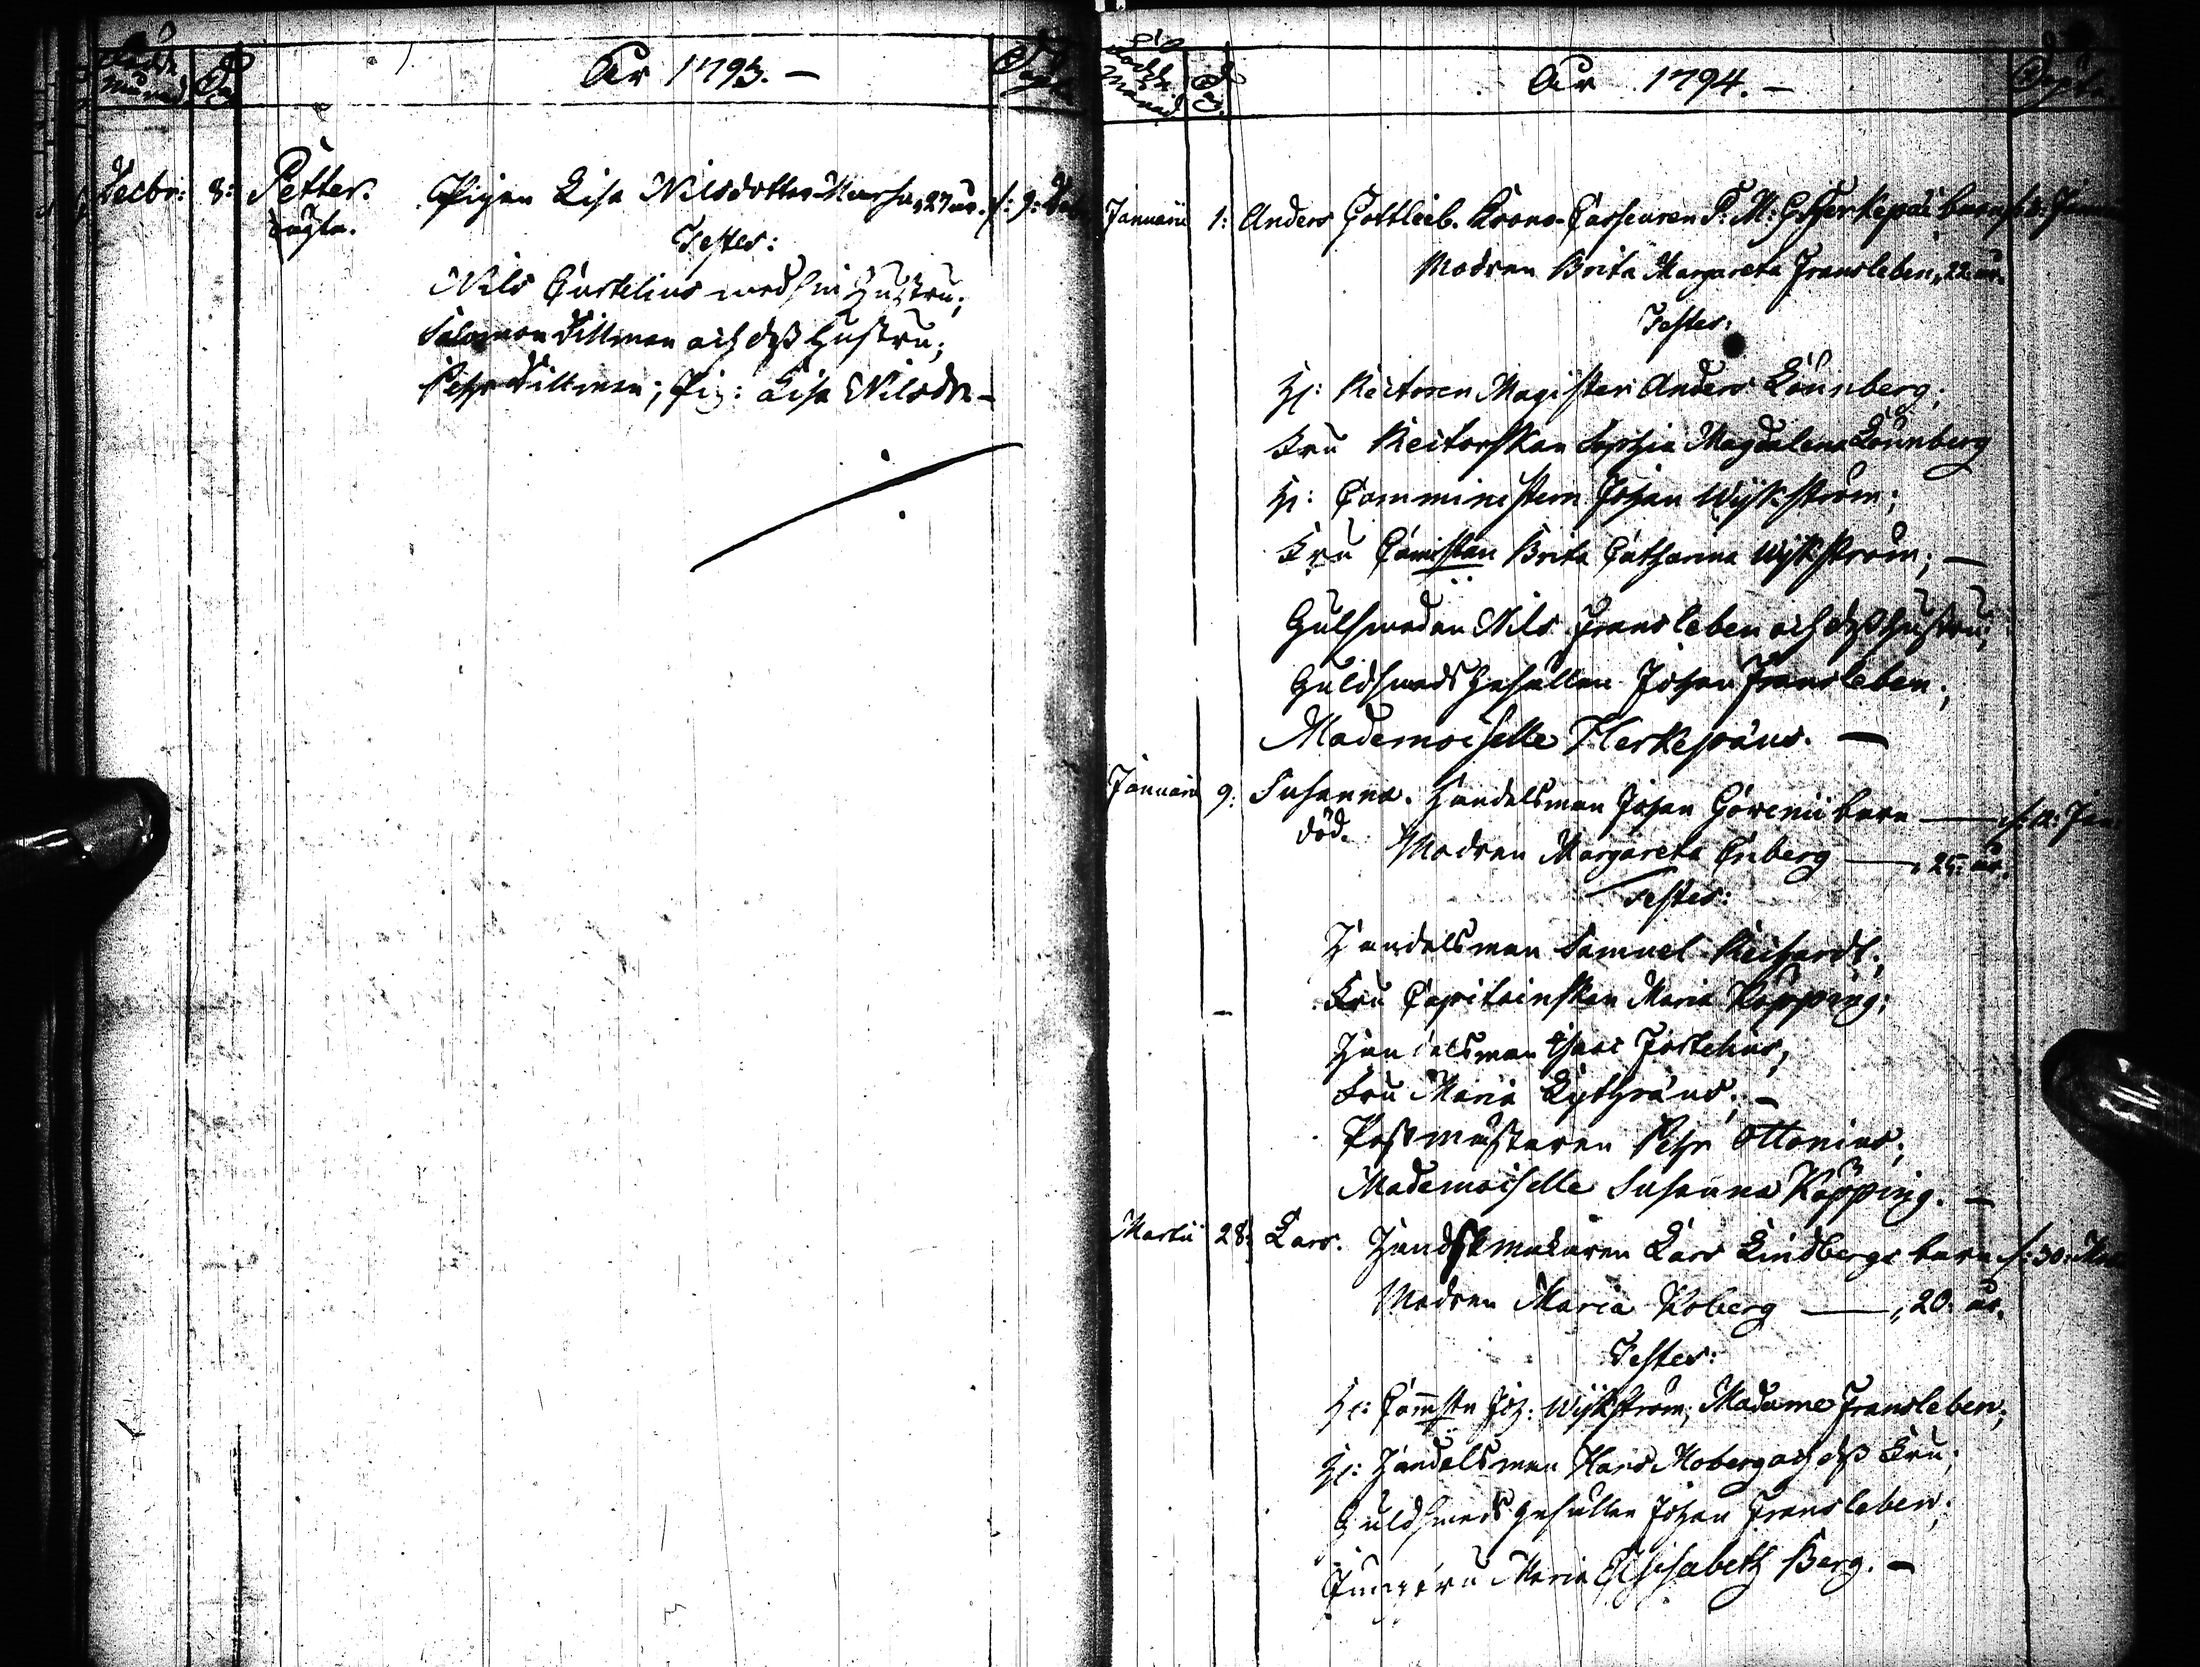 Födde Månad
Dag
År 1793. —
Döpte
Decbr: 8: Petter. Pigan Lisa Nilsdotter 27 år. d: 9: Dec
oägta.
Testes:
Nils Curtelius med sin Hustru;
Salomon Dillman och dess Hustru;
Pehr Dillman; Pig: Lisa Nilsdr —
Födde Månad
Dag
År 1794. —
Döpte
Januarii 1: Anders Gottlieb. Krono-Casseuren Herkepæi barn d: Janua
Modren Brita Margareta Fransleben, 22 år.
Testes:
Hr: Rectoren Magister Anders Lönnberg;
Fru Rectorskan Sophia Magdalena Lönnberg
Hr: Comministern Johan Wijkström;
Fru Comiskan Brita Catharina Wijkström; —
Gulsmeden Nils Fransleben och dess Hustru;
Guldsmeds Gesällen Johan Fransleben;
Mademoiselle Herkepæus. —
Januarii 9: Susanna. Handelsman Johan barn — d: 12: Jan
död. Modren Margareta Enberg — 25: år.
Testes:
Handelsman Samuel Reichardt;
Fru Capitainskan Maria Köpping;
Handelsman Isaac
Fru Maria Lythræus; —
Postmästaren Pehr Ottonius;
Mademoiselle Susanna Köpping. —
Martii 28: Lars. Handskmakaren Lars Lindbergs barn d: 30: Mar
Modren Maria Moberg — 20: år.
Testes:
Hr: Comstn Joh: Wijkström; Madame Fransleben;
Hr: Handelsman Hans Moberg och dess Fru;
Guldsmeds gesällen Johan Fransleben;
Jungfru Maria Elisabeth Berg. —